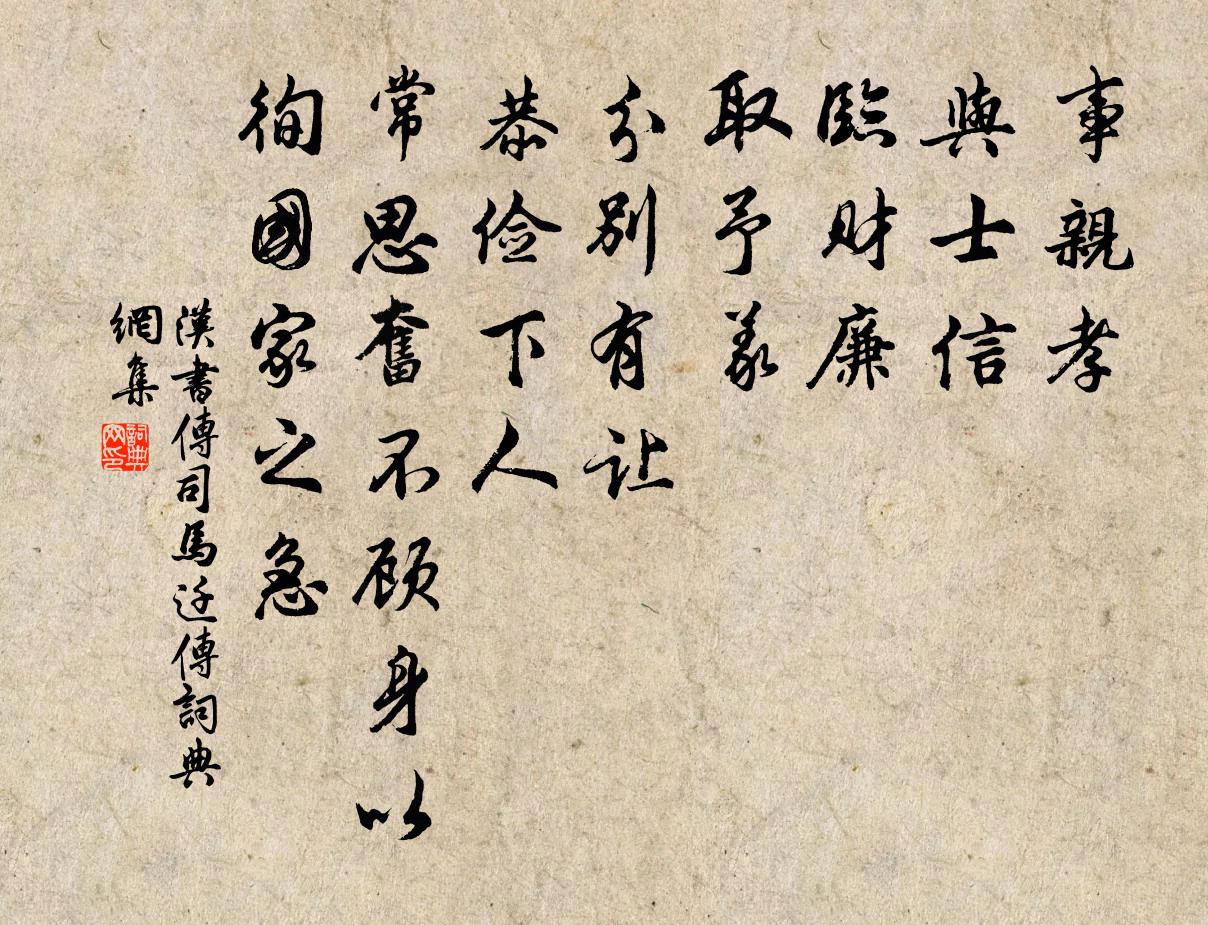 事親孝
與士信
臨財廉
取予義
分別有让
恭俭下人
常思奮不顾身以
徇國家之急
漢書傳司馬迁傳詞典
網集
詞典
网印